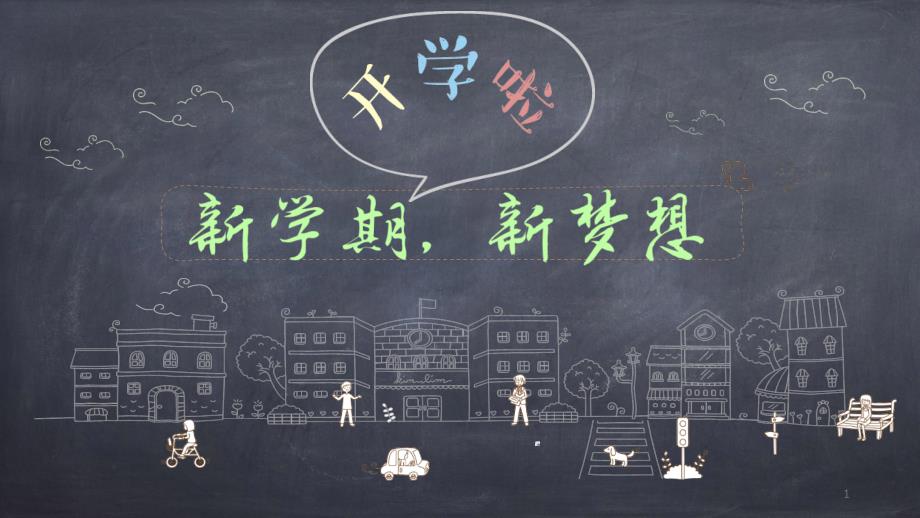 开学啦
新学期，新梦想
1